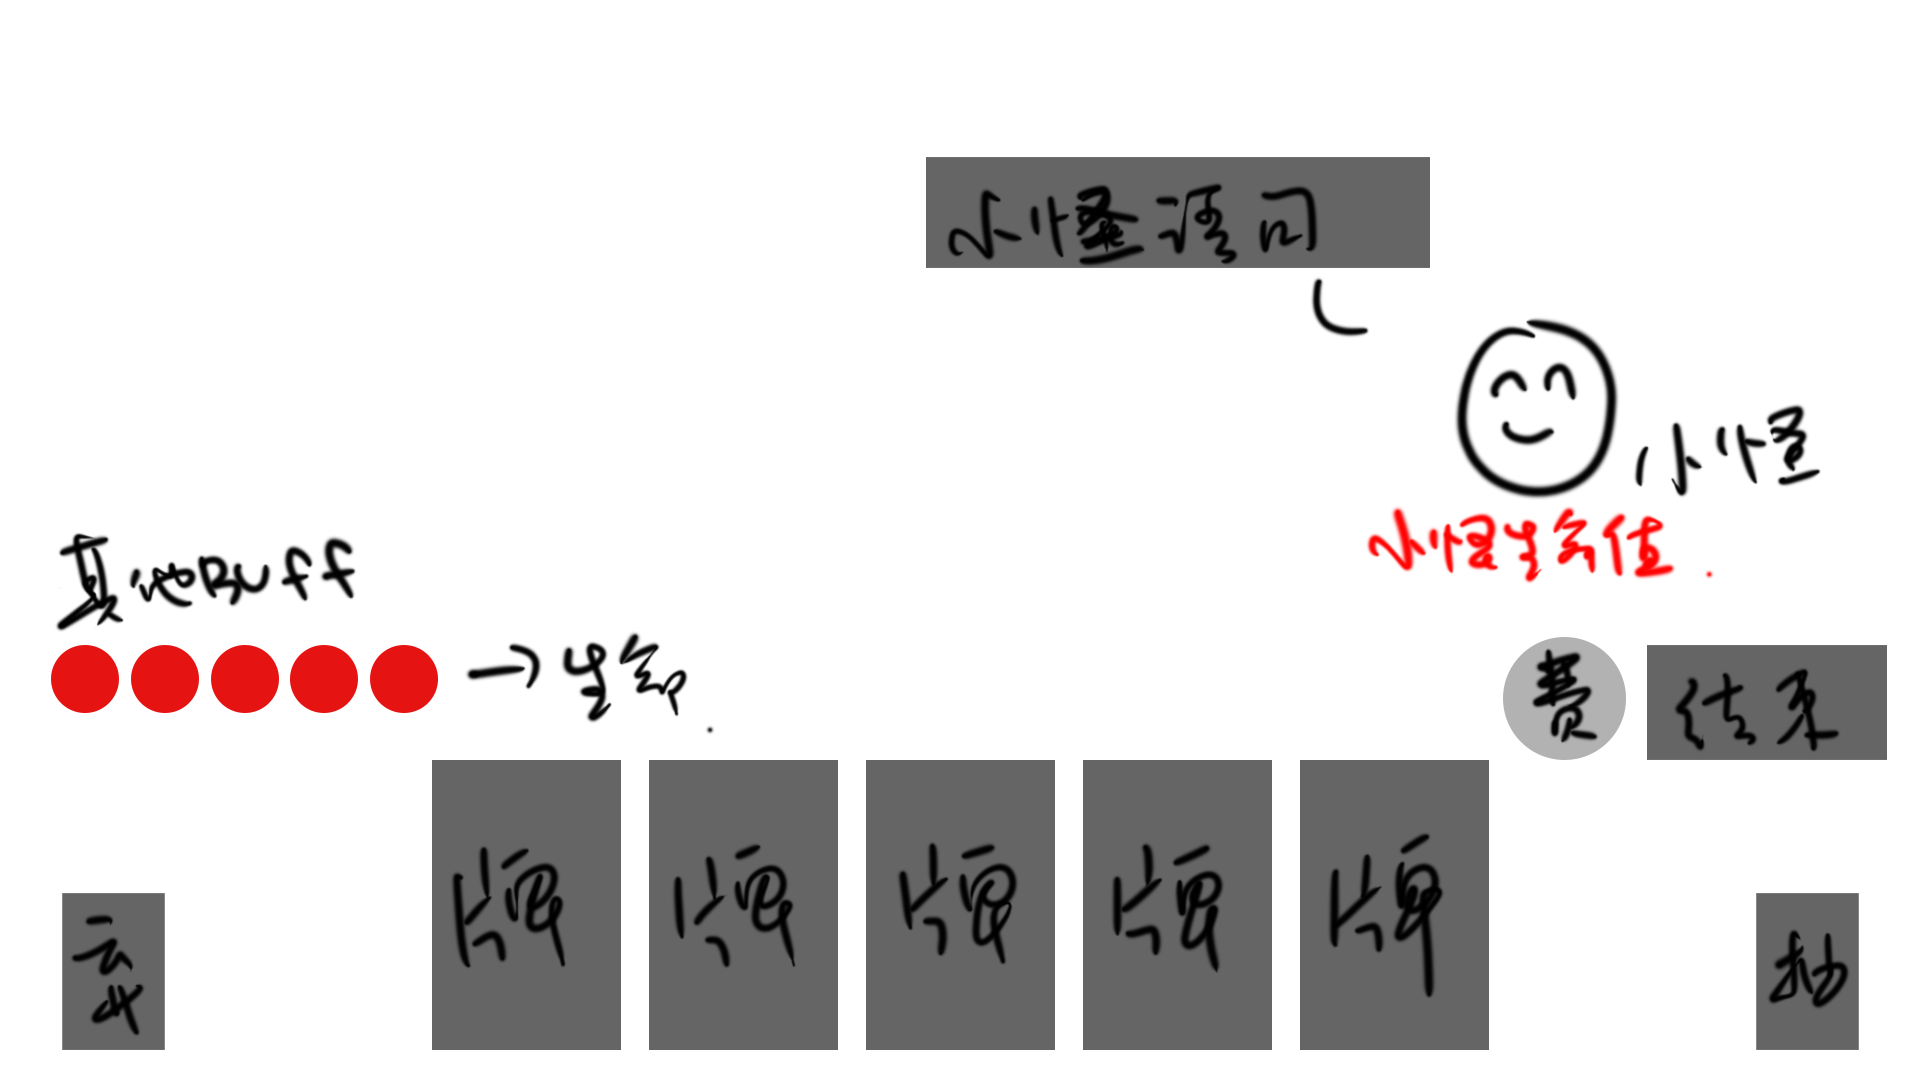 小怪逐问
小怪
小怪生命值.
其他Buff
→生命.
费
结束
牌
牌
牌
牌
牌
弃
抽